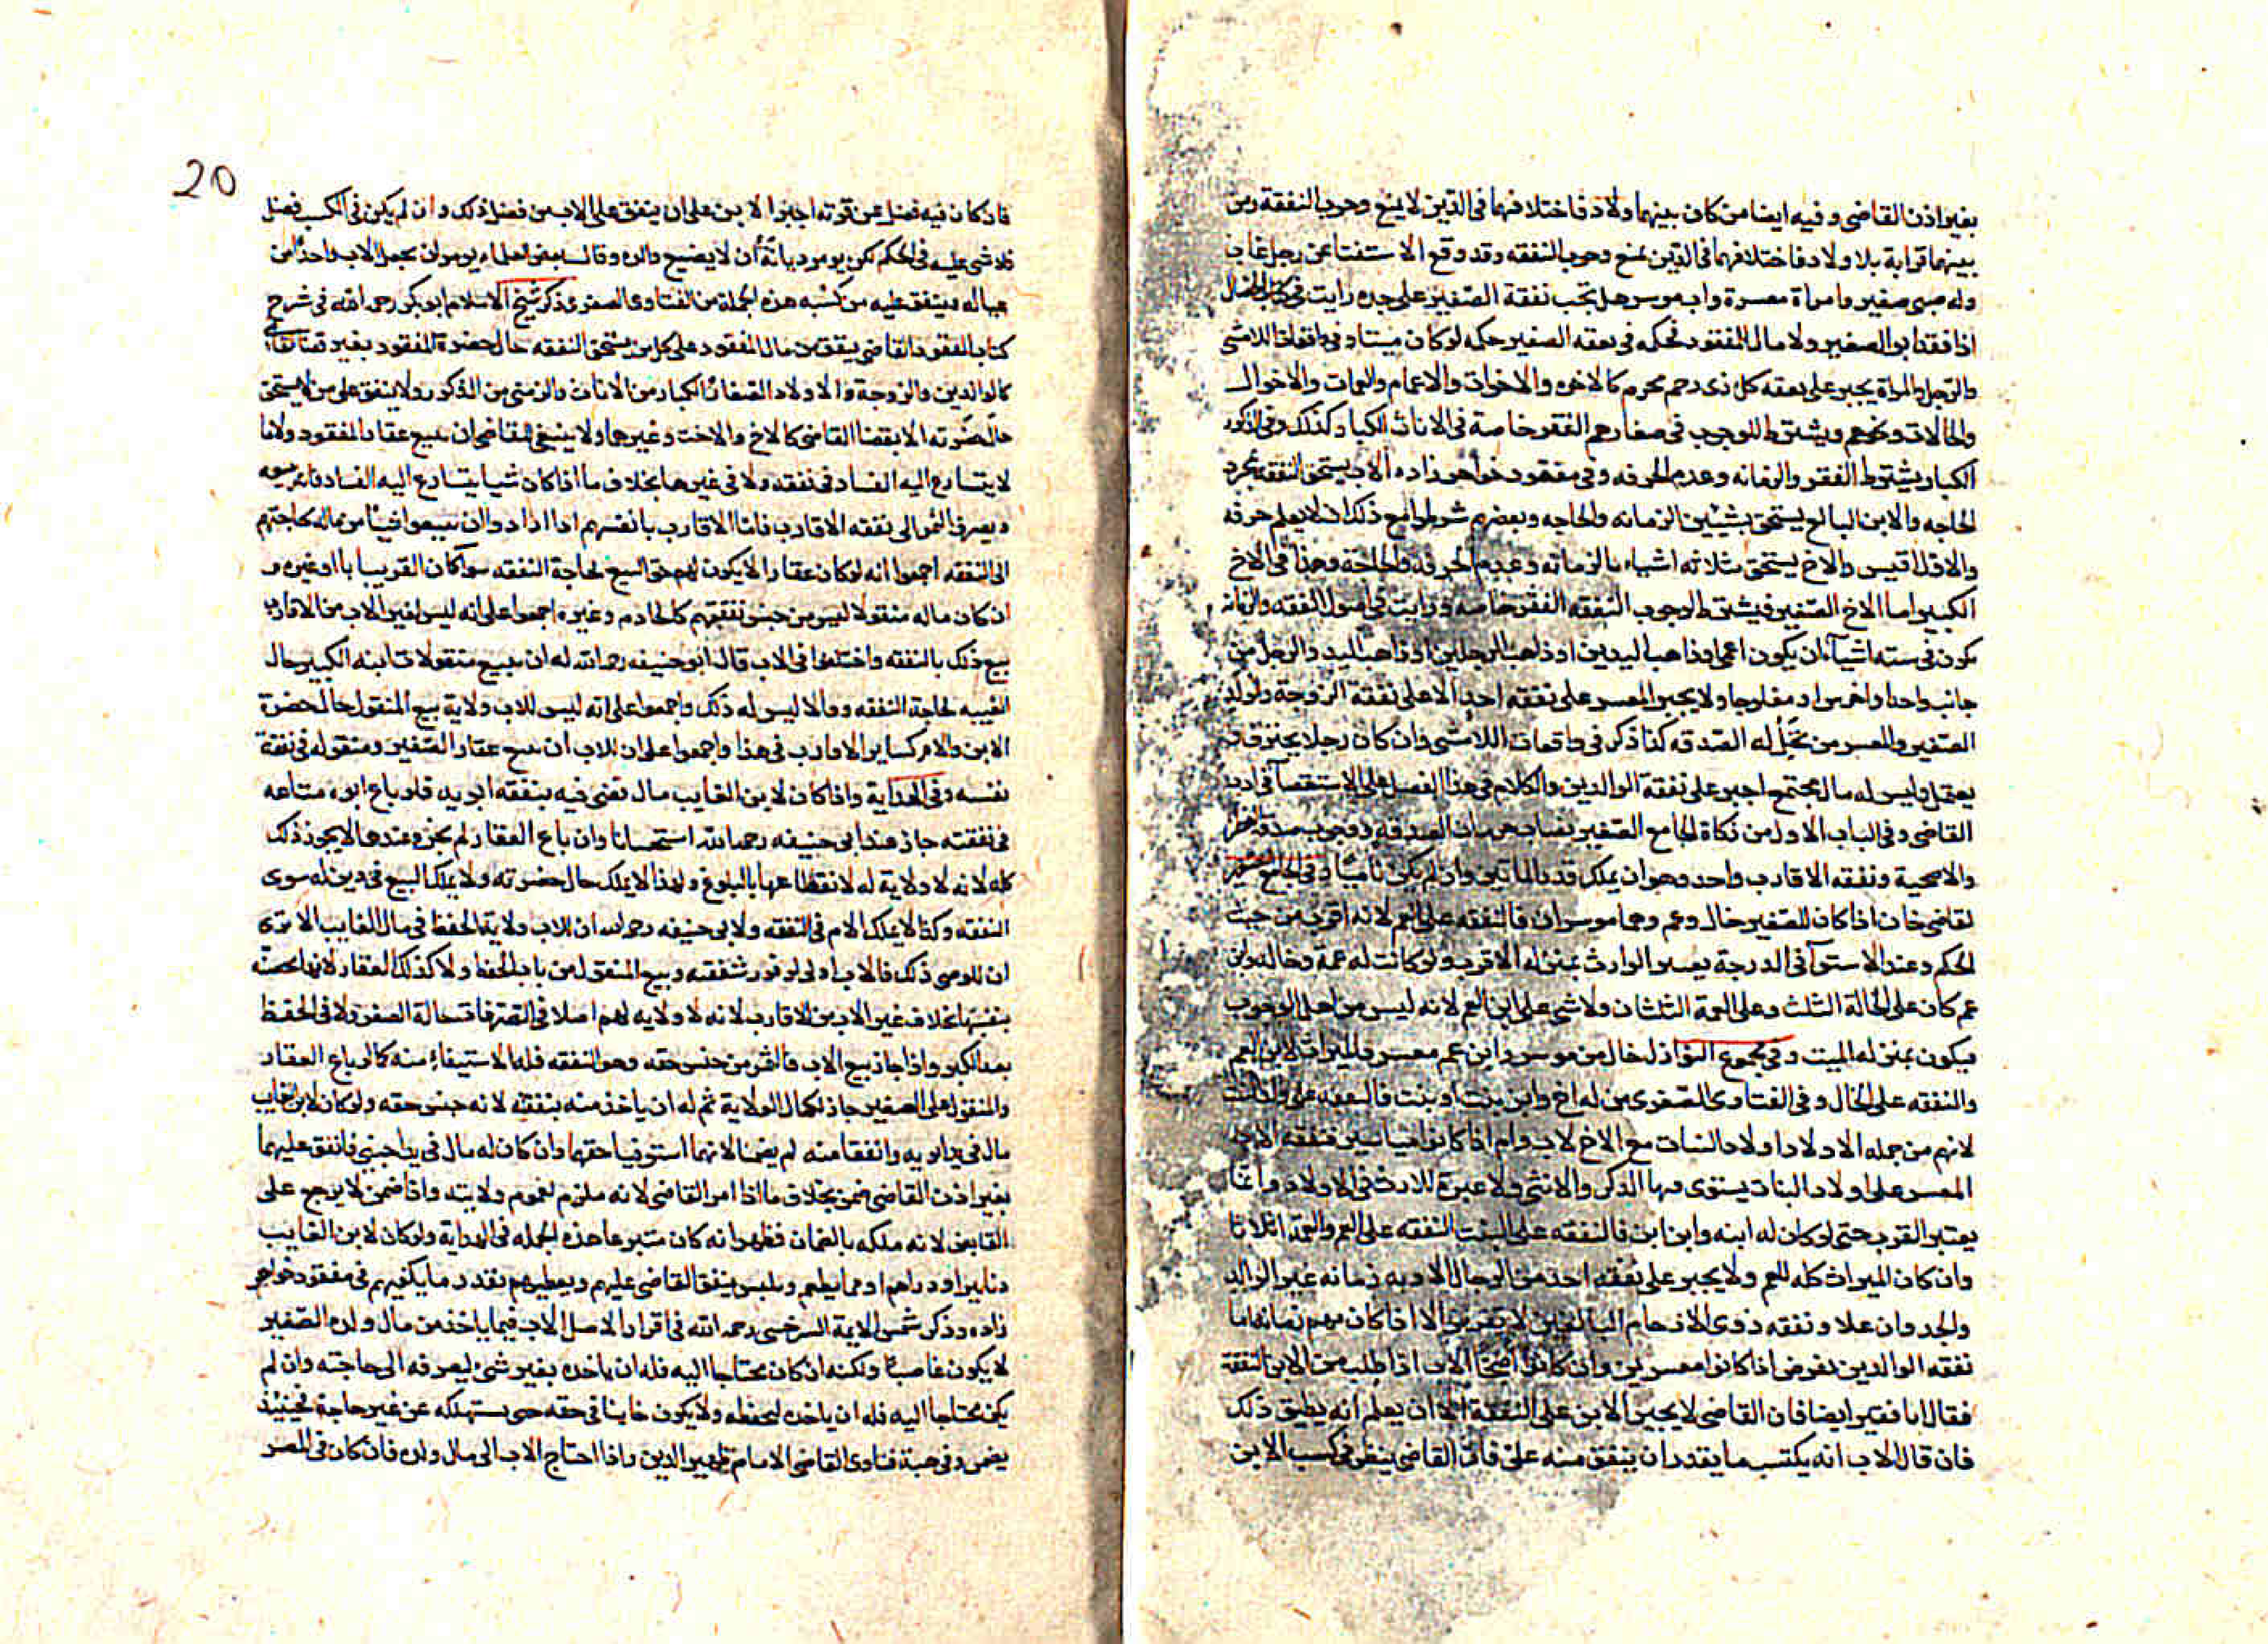 بغير اذن القاضى وفيه ايضا من كان بينهما ولاد فاختلافهما فى الدين لا يمنع وجوب النفقة ومن
بينهما قرابة بلا ولاد فاختلافهما فى الدين يمنع وجوب النفقه وقد وقع الاستفتا عن رجل غاب
وله صبى صغير وامراة معسرة واب موسر هل تجب نفقة الصغير على جده رايت فى كتاب
اذا فقد ابو الصغير ولا مال للمفقود فحكمه فى نفقه الصغير حكمه لو كان ميتا وفى واقعات اللامشى
والرجل والمراة يجبر على نفقه كل ذى رحم محرم كالاخوه والاخوات والاعمام والعمات والاخوال
والخالات ونحوهم ويشترط للوجوب فى صغارهم الفقر خاصة فى الاناث الكبار كذلك وفى الذكور
الكبار يشترط الفقر والزمانه وعدم الحرفه وفى مفقود خواهر زاده الاب يستحق النفقه بمجرد
الحاجه والابن البالغ يستحق بشيئين الزمانه والحاجه وبعضهم شرطوا مع ذلك ان لا يعلم حرفه
والاول اقيس والاخ يستحق بثلاثه اشياء بالزمانه وعدم الحرفه والحاجة وهذا فى الاخ
الكبير اما الاخ الصغير فيشترط لوجوب النفقه الفقر خاصه ورايت فى اصول الفقه والزمانه
تكون فى سته اشياء ان يكون اعمى او ذاهب اليدين او ذاهب الرجلين او ذاهب اليد والرجل من
جانب واحد او اخرس او مفلوجا ولا يجبر المعسر على نفقه احد الا على نفقة الزوجة والولد
الصغير والمعسر من تحل له الصدقه كذا ذكر فى واقعات اللامشى وان كان رجلا يحترف او
يعتمل وليس له مال مجتمع اجبر على نفقة الوالدين والكلام فى هذا الفصل على الاستقصآ فى ادب
القاضى وفى الباب الاول من زكاة الجامع الصغير نصاب حرمان الصدقه ووجوب صدقة الفطر
والاضحية ونفقه الاقارب واحد وهو ان يملك قدر المأتين وان لم يكن ناميا وفى الجامع الصغير
لقاضى خان اذا كان للصغير خال وعم وهما موسران فالنفقه على العم لانه اقرب من حيث
الحكم وعند الاستوآ فى الدرجة يعسر الوارث بمنزله الاقرب ولو كانت له عمة وخاله وابن
عم كان على الخالة الثلث وعلى العمة الثلثان ولا شى على ابن العم لانه ليس من اهل الوجوب
فيكون بمنزله الميت وفى مجموع النوازل خال من موسر وابن عم معسر فالميراث لابن العم
والنفقه على الخال وفى الفتاوى الصغرى من له اخ وابن بنت او بنت بنت فالنفقه على
لانهم من جمله الاولاد اولاد البنات مع الاخ لاب وام اذا كانوا اغنيا فنفقه الاب
المعسر على اولاد البنات يستوى فيها الذكر والانثى ولا عبرة للارث فى الاولاد وانما
يعتبر القرب حتى لو كان له ابنه وابن ابن فالنفقه على البنت النفقه على العم والعمة اثلاثا
وان كان الميراث كله للعم ولا يجبر على نفقه احد من الرجال الا وبه زمانه غير الوالد
والجد وان علا ونفقه ذوى الارحام البالغين لا تفرض الا اذا كان بهم زمانه اما
نفقه الوالدين تفرض اذا كانوا معسرين وان كانوا اصحا الاب اذا طلب من الابن النفقة
فقال انا فقير ايضا فان القاضى لا يجبر الابن على النفقة الا ان يعلم انه يطيق ذلك
فان قال الاب انه يكتسب ما يقدر ان ينفق منه على فان القاضى ينظر فى كسب الابن
20
فان كان فيه فضل عن قوته اجبر الابن على ان ينفق على الاب من فضل ذلك وان لم يكن فى الكسب فضل
فلا شى عليه فى الحكم لكن يومر ديانة أن لا يضيع والده وقال بعض العلماء يومر ان يجعل الاب واحدا من
عياله وينفق عليه من كسبه هذه الجملة من الفتاوى الصغرى ذكر شيخ الاسلام ابو بكر رحمه الله فى شرح
كتاب المفقود القاضى ينفق من مال المفقود على كل من يستحق النفقه حال حضرة المفقود بغير قضا
كالوالدين والزوجة والاولاد الصغار الكبار من الاناث والزمنى من الذكور ولا ينفق على من لا يستحق
حال حضرته الا بقضا القاضى كالاخ والاخت وغيرها ولا ينبغى للقاضى ان يبيع عقار المفقود ولا ما
لا يتسارع اليه الفساد فى نفقه ولا فى غيرها بخلاف ما اذا كان شيا يتسارع اليه الفساد فانه يبيعه
ويصرف الثمن الى نفقه الاقارب فاما الاقارب بانفسهم اذا ارادوا ان يبيعوا شيئا من ماله لحاجتهم
الى النفقه اجمعوا انه لو كان عقارا لا يكون لهم حق البيع لحاجة النفقه سوآ كان القريب ابا او غيره و
ان كان ماله منقولا ليس من جنس نفقتهم كالخادم وغيره اجمعوا على انه ليس لغير الاب من الاقارب
بيع ذلك بالنفقه واختلفوا فى الاب قال ابو حنيفه رحمه الله له ان يبيع منقولات ابنه الكبير حال
الغيبه لحاجة النفقه وقالا ليس له ذلك واجمعوا على انه ليس للاب ولاية بيع المنقول حال حضرة
الابن والام كساير الاقارب فى هذا واجمعوا على ان للاب ان يبيع عقار الصغير ومنقوله فى نفقة
نفسه وفى الهداية واذا كان لابن الغايب مال قضى فيه بنفقه ابويه فلو باع ابوه متاعه
فى نفقته جاز عند ابى حنيفه رحمه الله استحسانا وان باع العقار لم يجز وعندهما لا يجوز ذلك
كله لانه لا ولاية له لانقطاعها بالبلوغ ولهذا لا يملك حال حضرته ولا يملك البيع فى دين له سوى
النفقه وكذا لا يملك الام فى النفقه ولابى حنيفه رحمه الله ان للاب ولاية الحفظ فى مال الغايب الا ترى
ان للوصى ذلك فالاب اولى لوفور شفقته وبيع المنقول من باب الحفظ ولا كذلك العقار لانها محصنه
بنفسها بخلاف غير الاب من الاقارب لانه لا ولايه لهم اصلا فى التصرفات حالة الصغر ولا فى الحفظ
بعد الكبر واذا جاز بيع الاب فالثمن من جنس حقه وهو النفقه فله الاستيفاء منه كما لو باع العقار
والمنقول على الصغير جاز لكمال الولاية ثم له ان ياخذ منه بنفقته لانه جنس حقه ولو كان لابن الغايب
مال فى يد ابويه وانفقا منه لم يضمنا لانهما استوفيا حقهما وان كان له مال فى يد اجنبى فانفق عليهما
بغير اذن القاضى ضمن بخلاف ما اذا امر القاضى لانه ملزم لعموم ولايته واذا ضمن لا يرجع على
القابض لانه ملكه بالضمان فظهر انه كان متبرعا هذه الجمله فى الهداية ولو كان لابن الغايب
دنانير او دراهم او مما يطعم ويلبس ينفق القاضى عليهم ويعطيهم بقدر ما يكفيهم فى مفقود خواهر
زاده وذكر شمس الايمة السرخسى رحمه الله فى اقرار الاصل الاب فيما ياخذ من مال ولده الصغير
لا يكون غاصبا ولكنه ان كان محتاجا اليه فله ان ياخذه بغير شىء ليصرفه الى حاجته وان لم
يكن محتاجا اليه فله ان ياخذه ليحفظه ولا يكون خاينا فى حقه حتى يستهلكه عن غير حاجة فحينئذ
يضمن وفى هبة فتاوى القاضى الامام ظهير الدين واذا احتاج الاب الى مال ولده فان كان فى المصر